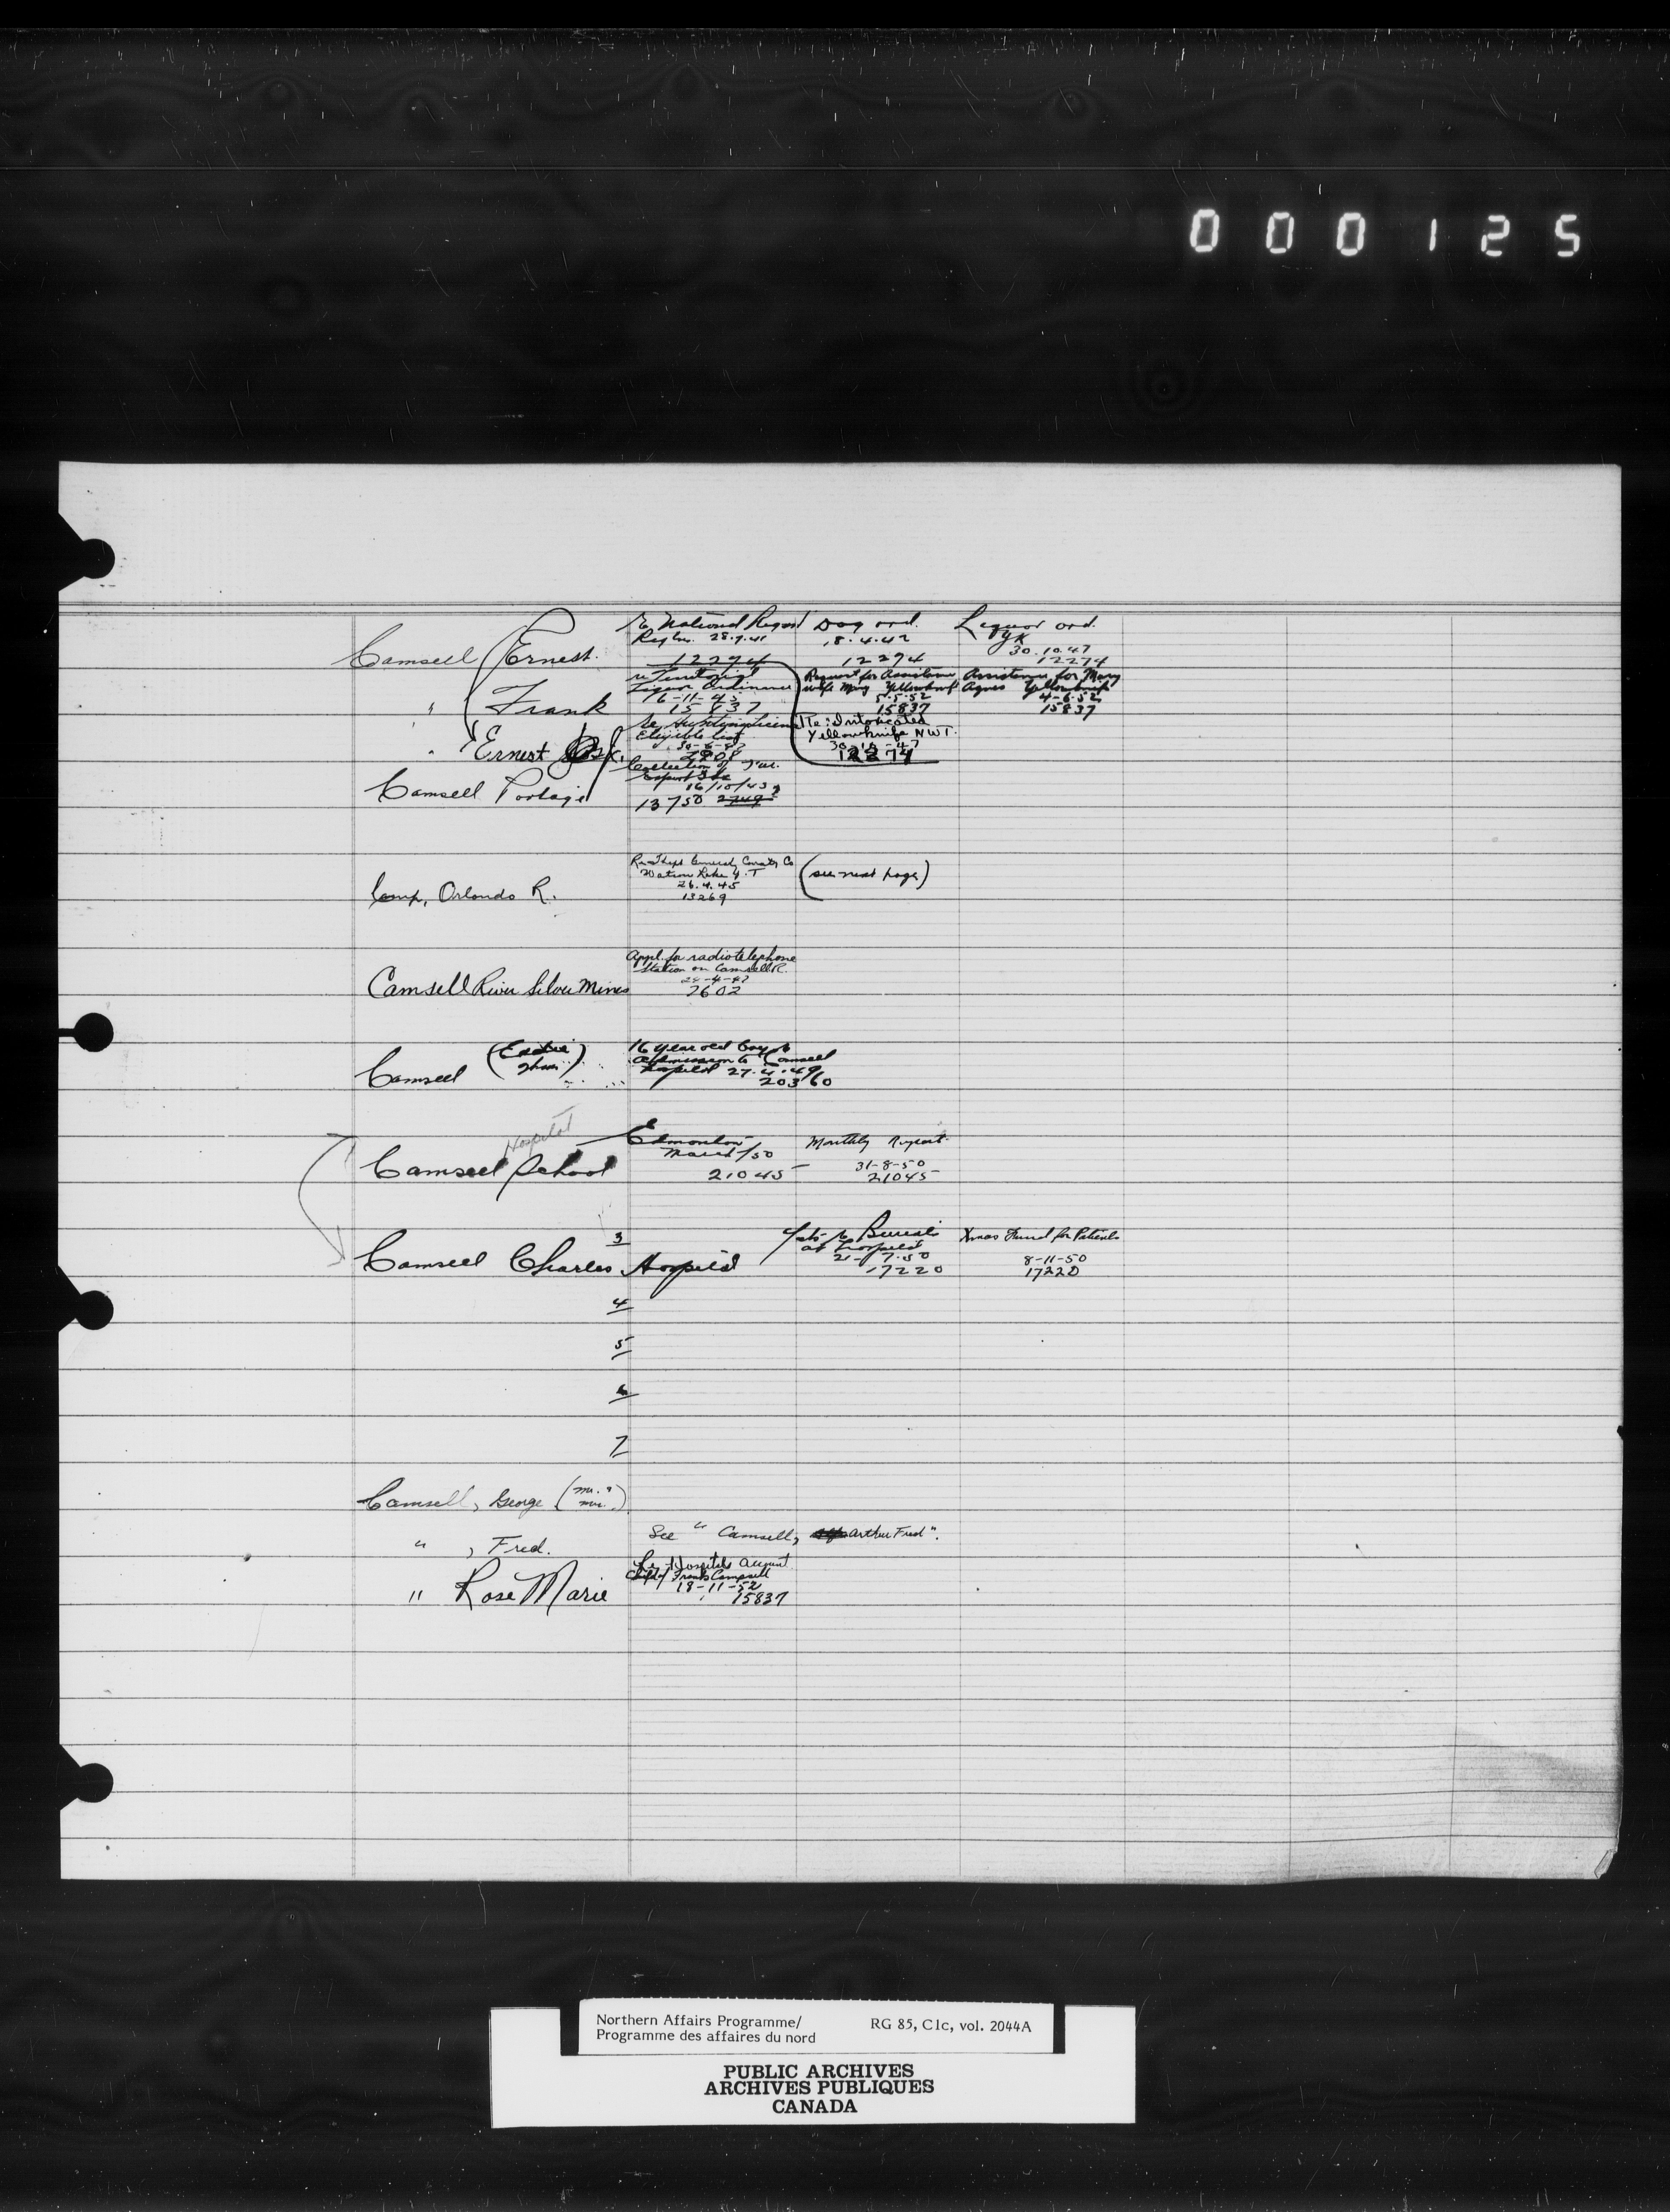 000125
Camsell Ernest.
Re National Regist
28.7.41
12294
Dog ord.
18.4.42
12294
Liquor ord.
YK
30.10.47
12274
" Frank
re Territorial
Liquor Ordinance
16-11-45
15837
Request for Assistance
wife Mary Yellowknife
5.5.52
15837
Assistance for Mary
Agnes Yellowknife
4-6-52
15837
" Ernest
re Hunting License
Eligible list
Re: Intoxicated
Yellowknife NWT.
30-10-47
12274
Camsell Portage
Collection of Fur
Export Tax
16/10/43
13750
Camp, Orlando R.
Watson Lake Y.T
26.4.45
13269
(see next page)
Camsell River Silver Mines
Appl. for radiotelephone
Station on Camsell R.
7602
Camsell
16 year old boy
admission to Camsell
Hospital 27.4.49
20360
Hospital
Camsell School
Edmonton
March/50
21045
Monthly Report
31-8-50
21045
3
Camsell Charles Hospital
re Burials
at hospital
21-7-50
17220
Xmas Fund for Patients
8-11-50
17220
4
5
6
7
Camsell, George
" , Fred.
See "Camsell, Arthur Fred".
" Rose Marie
Re Hospital Account
Child of Frank Campsell
18-11-52
15837
Northern Affairs Programme/
Programme des affaires du nord
RG 85, C1c, vol. 2044A
PUBLIC ARCHIVES
ARCHIVES PUBLIQUES
CANADA